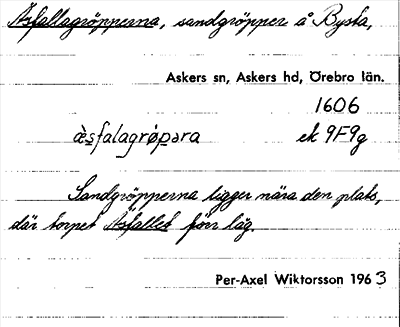 Åsfallagröpperna, sandgröpper å Bysta,
Askers sn, Askers hd, Örebro län.
1606
æsfalagrǿpəra ek 9F9g
Sandgröpperna ligger nära den plats,
där torpet Åsfallet förr låg.
Per-Axel Wiktorsson 1963